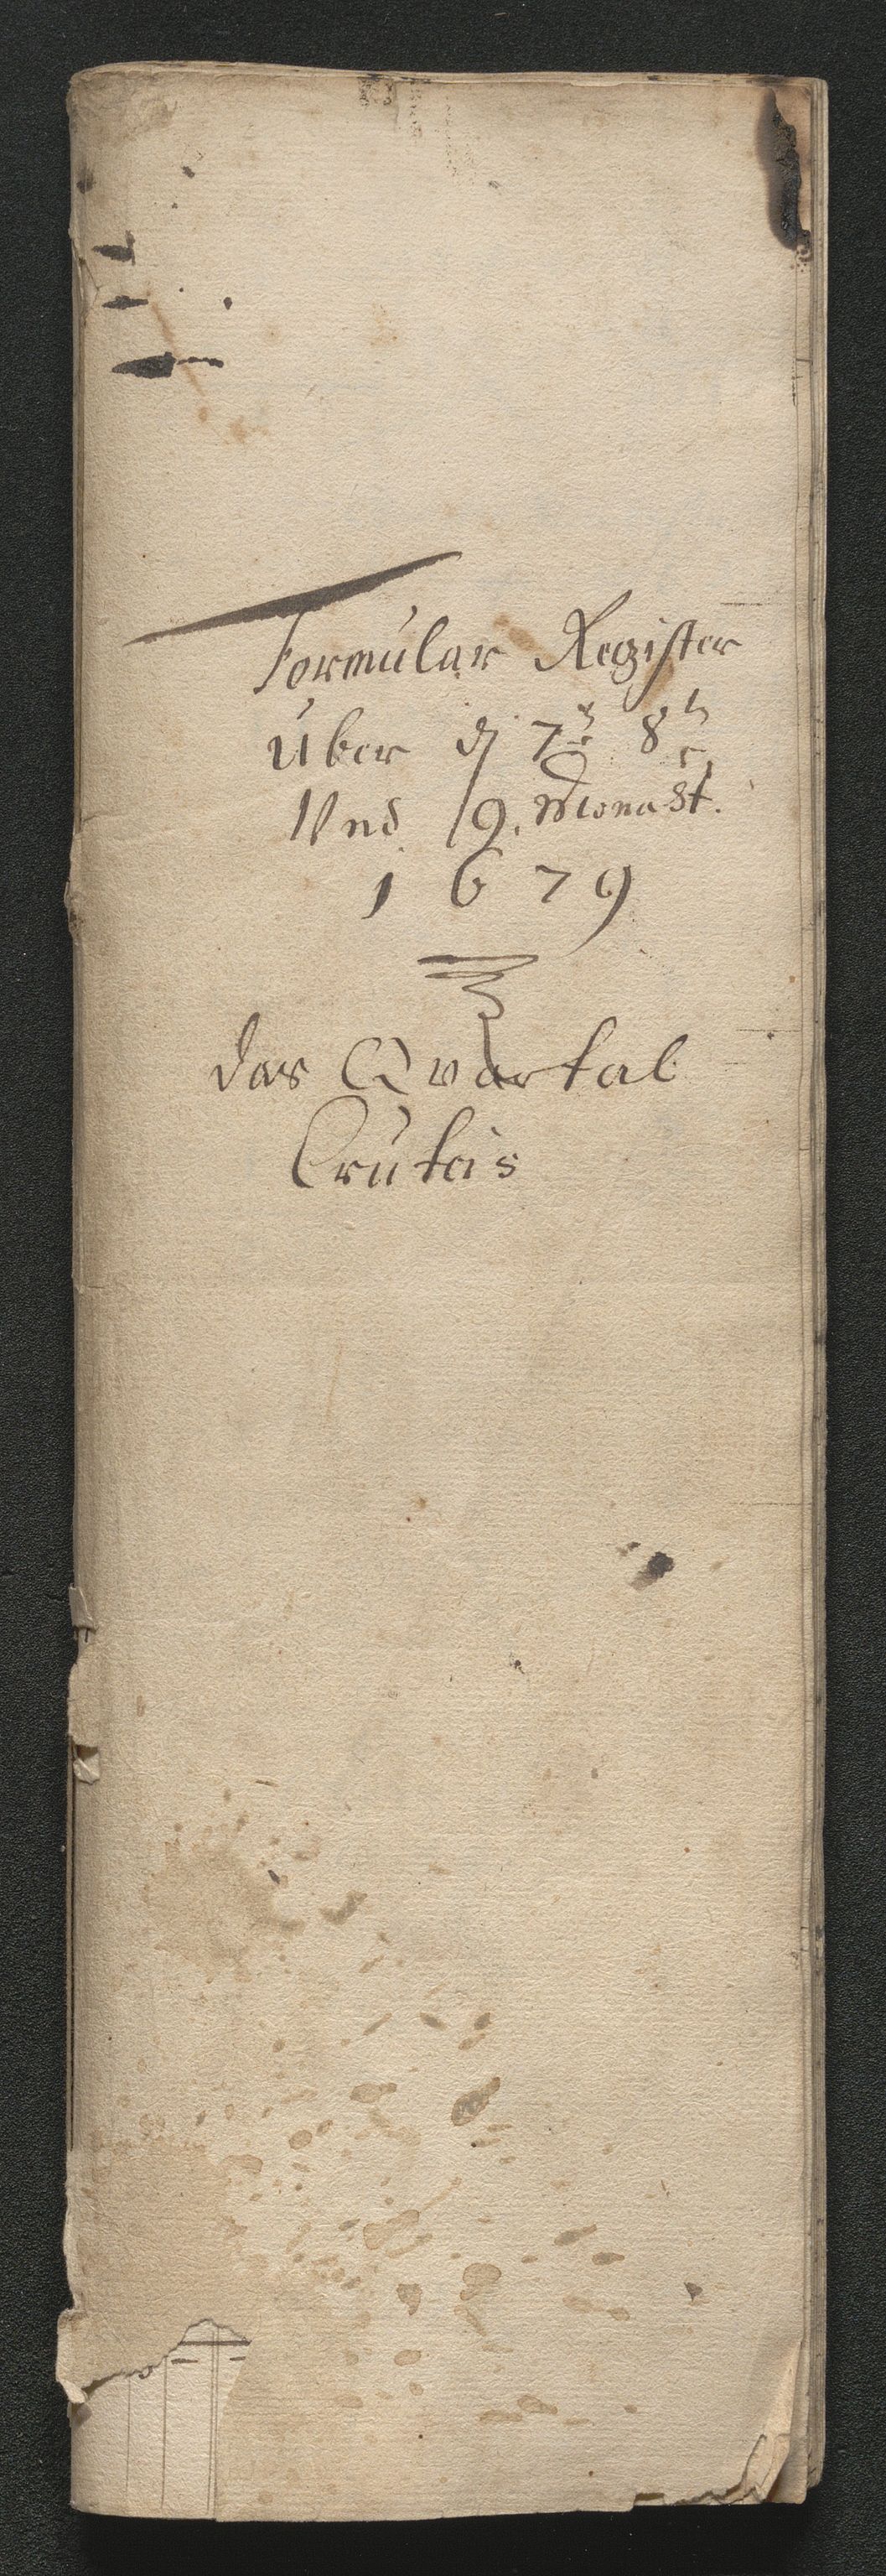 Formular Register
Über d 7t 8t
Vnd 9. Monast.
1679
das Qvartal
Crutcis